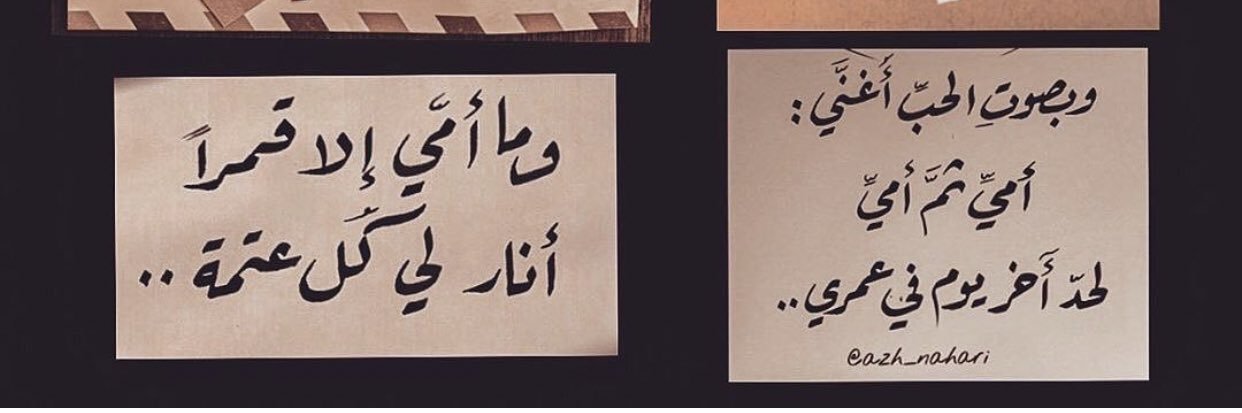 وما أمَّي إلا قمراً
أنار لي كُل عتمة ..
وبصوتِ الحبِّ أَغنَّي :
أميِّ ثمَّ أميِّ
لحدّ أَخر يوم في عمري ..
@azh_nahari